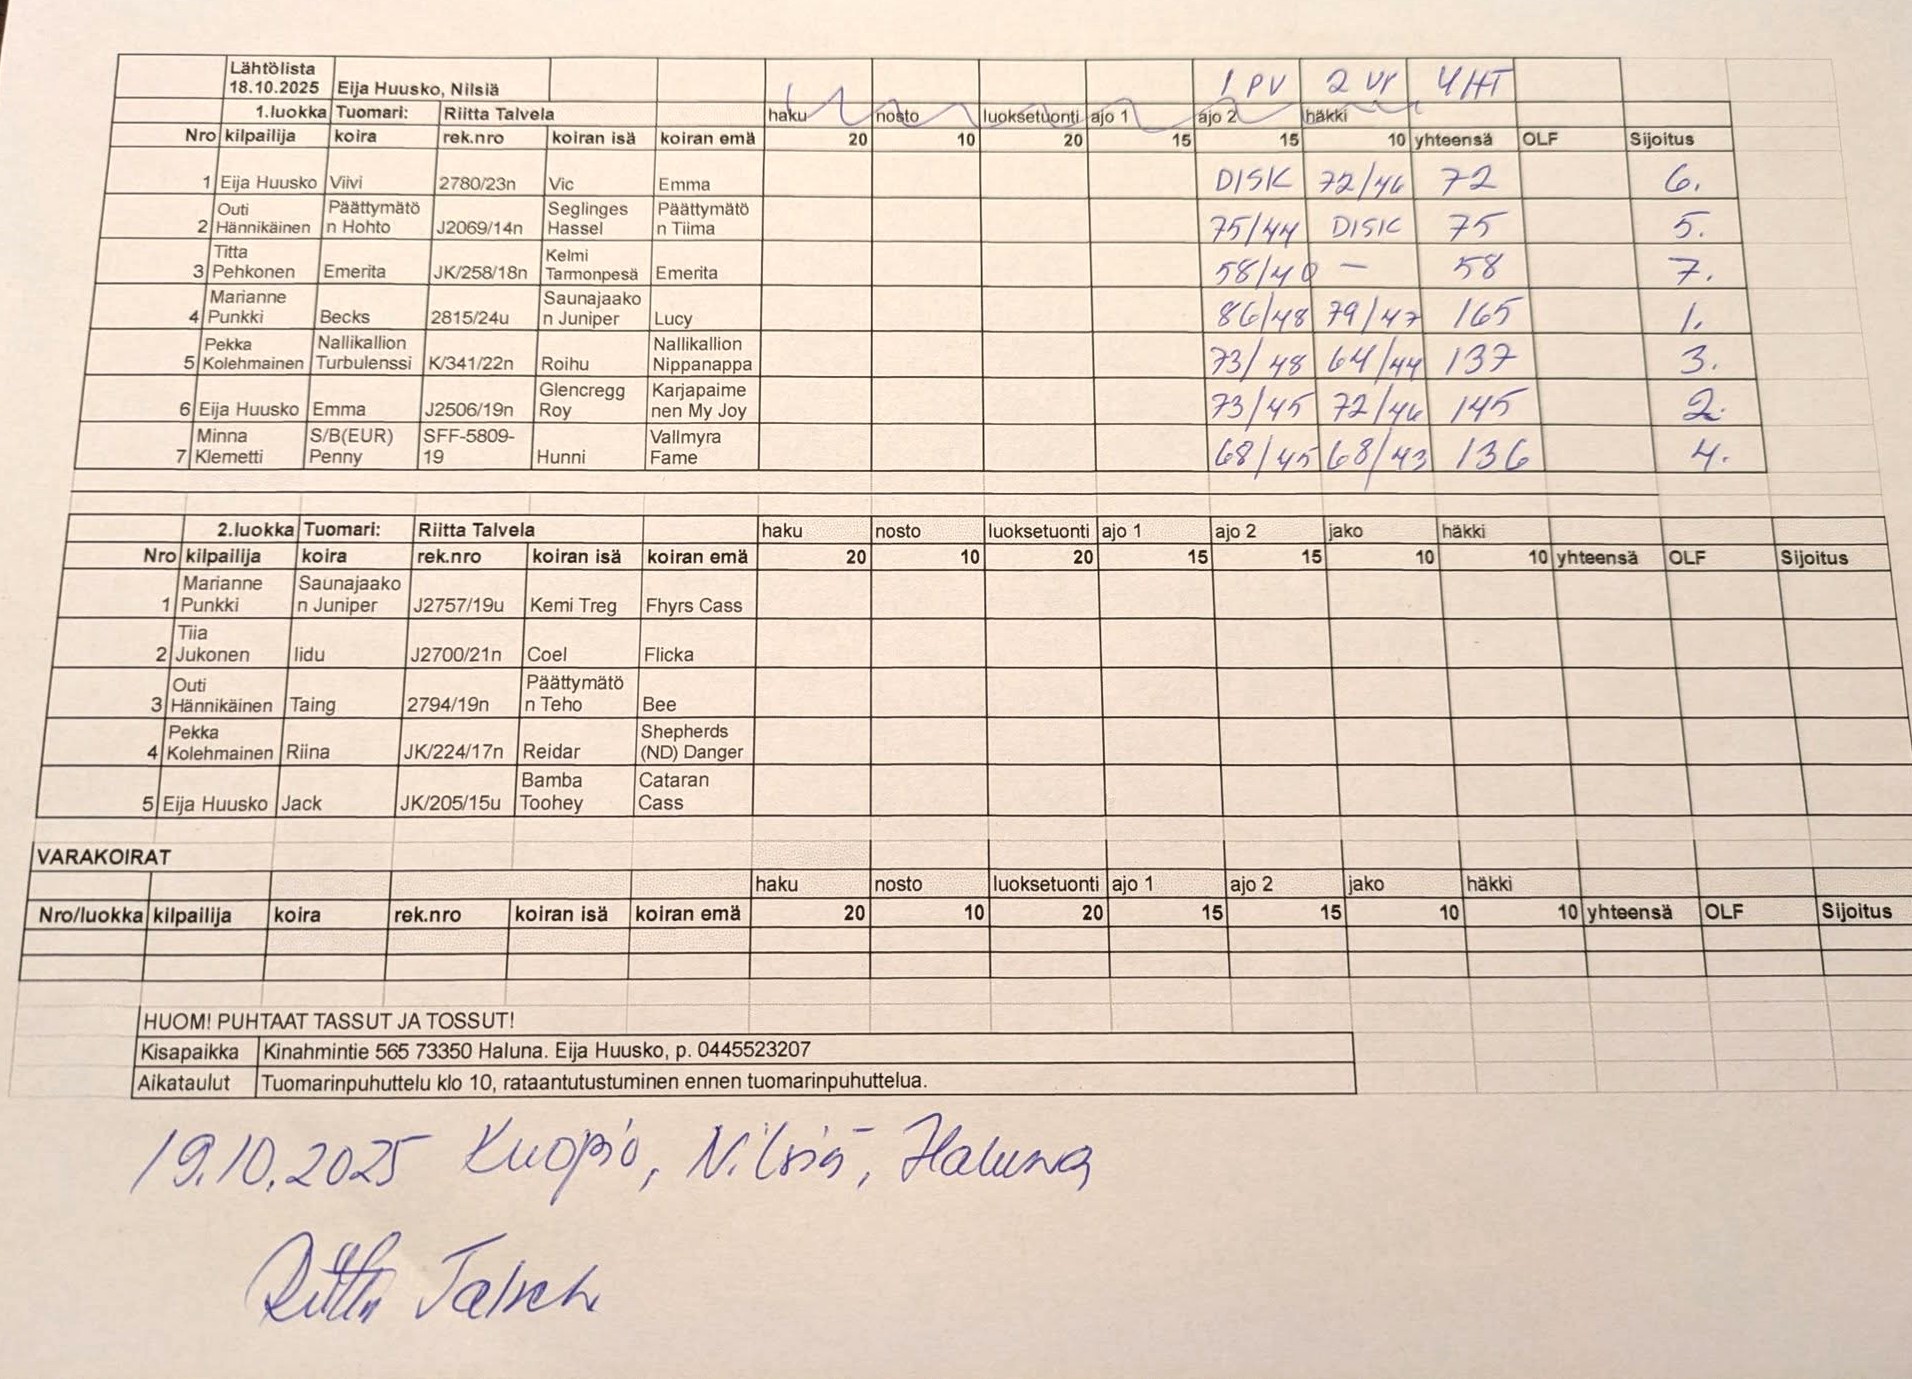 Lähtölista
18.10.2025 Eija Huusko, Nilsiä 1 PV 2 VP YHT
1.luokka Tuomari: Riitta Talvela haku nosto luoksetuonti ajo 1 ajo 2 häkki
Nro kilpailija koira rek.nro koiran isä koiran emä 20 10 20 15 15 10 yhteensä OLF Sijoitus
1 Eija Huusko Viivi 2780/23n Vic Emma DISK 72/46 72 6.
Outi Päättymätö Seglinges Päättymätö
2 Hännikäinen n Hohto J2069/14n Hassel n Tiima 75/44 DISK 75 5.
Titta Kelmi
3 Pehkonen Emerita JK/258/18n Tamonpesä Emerita 58/40 – 58 7.
Marianne Saunajaako
4 Punkki Becks 2815/24u n Juniper Lucy 86/48 79/47 165 1.
Pekka Nallikallion Nallikallion
5 Kolehmainen Turbulenssi K/341/22n Roihu Nippanappa 73/48 64/44 137 3.
Glencregg Karjapaime
6 Eija Huusko Emma J2506/19n Roy nen My Joy 73/45 72/46 145 2.
Minna S/B(EUR) SFF-5809- Vallmyra
7 Klemetti Penny 19 Hunni Fame 68/45 68/43 136 4.
2.luokka Tuomari: Riitta Talvela haku nosto luoksetuonti ajo 1 ajo 2 jako häkki
Nro kilpailija koira rek.nro koiran isä koiran emä 20 10 20 15 15 10 10 yhteensä OLF Sijoitus
Marianne Saunajaako
1 Punkki n Juniper J2757/19u Kemi Treg Fhyrs Cass
Tiia
2 Jukonen Iidu J2700/21n Coel Flicka
Outi Päättymätö
3 Hännikäinen Taing 2794/19n n Teho Bee
Pekka Shepherds
4 Kolehmainen Riina JK/224/17n Reidar (ND) Danger
Bamba Cataran
5 Eija Huusko Jack JK/205/15u Toohey Cass
VARAKOIRAT
haku nosto luoksetuonti ajo 1 ajo 2 jako häkki
Nro/luokka kilpailija koira rek.nro koiran isä koiran emä 20 10 20 15 15 10 10 yhteensä OLF Sijoitus
HUOM! PUHTAAT TASSUT JA TOSSUT!
Kisapaikka Kinahmintie 565 73350 Haluna. Eija Huusko, p. 0445523207
Aikataulut Tuomarinpuhuttelu klo 10, rataantutustuminen ennen tuomarinpuhuttelua.
19.10.2025 Kuopio, Nilsiä, Haluna
Riitta Talvela